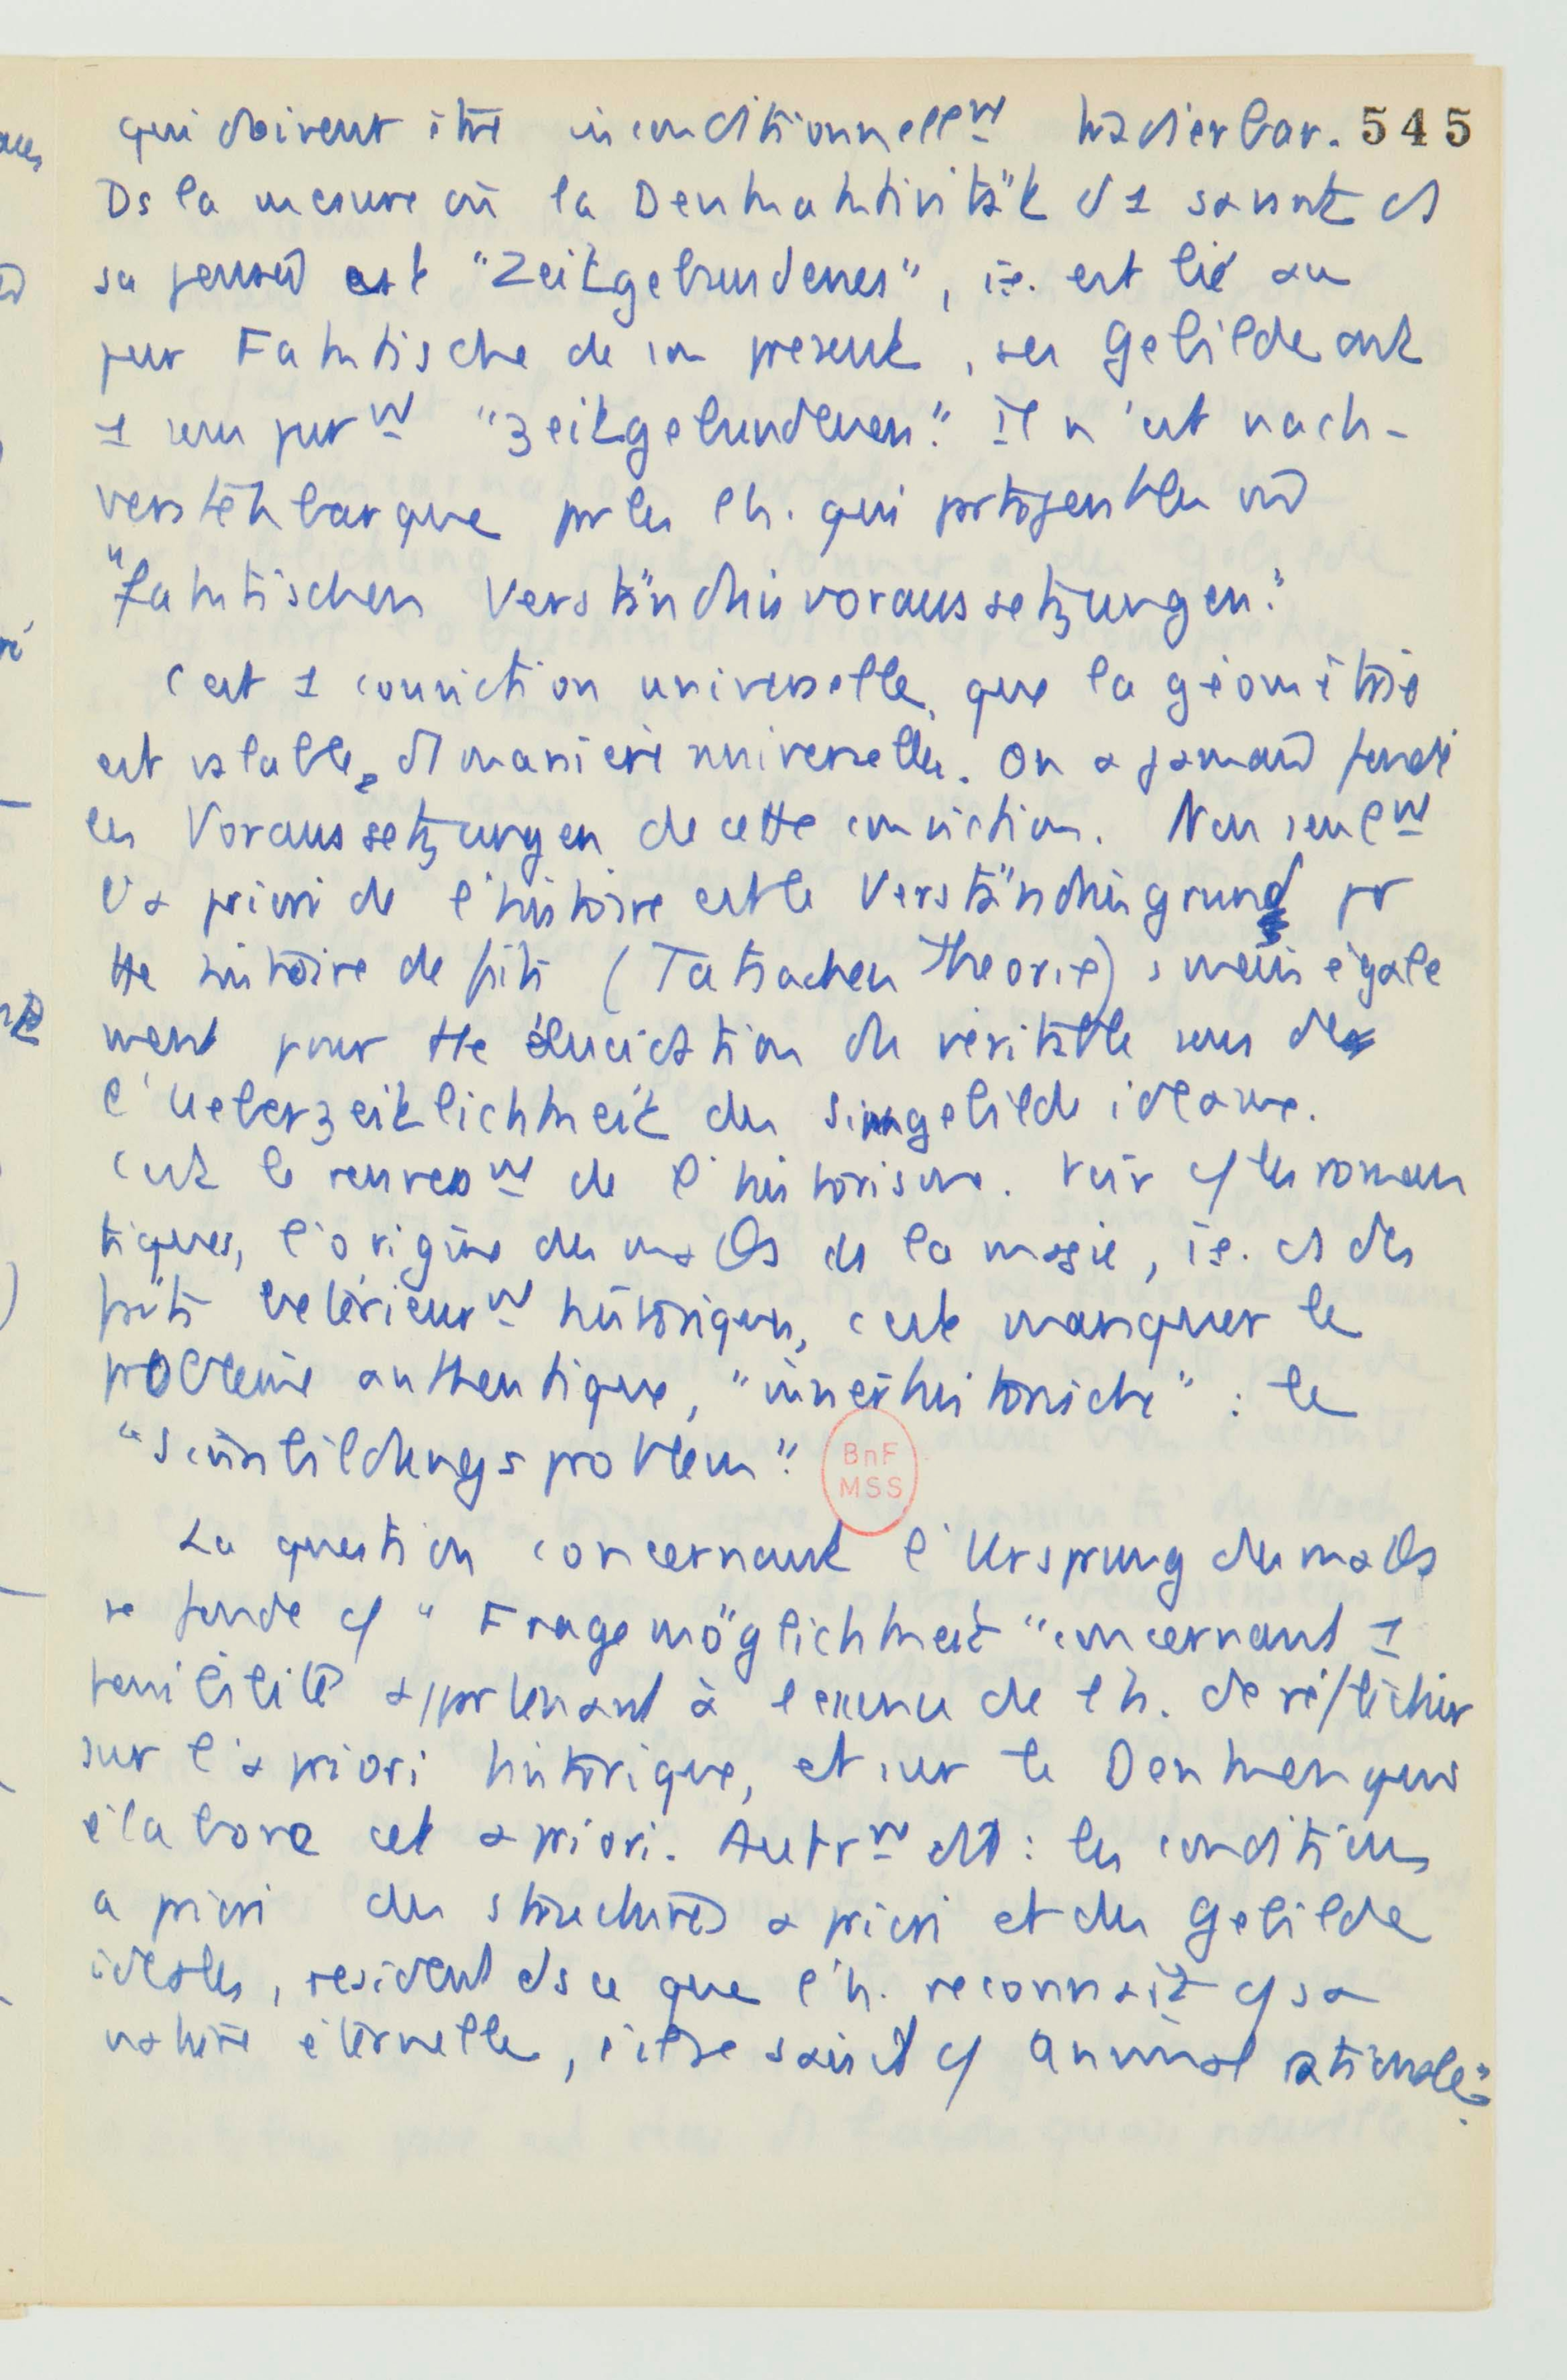 qui doivent être inconditionnellᵐ tradierbar. 545
Ds la mesure où la Denkaktivität d'1 savant ds
sa pensée est "Zeitgebundenes", i.e. est lié au
pur Faktische de son présent, ses Gebilde ont
1 sens purᵐ "zeitgebundenen". Il n'est nach-
verstehbar que pr les h. qui partagent les mê
"faktischen Verständnisvoraussetzungen."
C'est 1 conviction universelle, que la géométrie
est valable, d manière universelle. On a jamais fondé
les Voraussetzungen de cette conviction. Non seulᵐ
l'a priori de l'histoire est le Verständnisgrund pr
tte histoire de faits (Tatsachen Theorie), mais égale
ment pour tte élucidation du véritable sens de
l'Ueberzeitlichkeit des Sinngebilde idéaux.
C'est le renversᵐ de l'historisme. Voir c/ les roman
tiques, l'origine des maths ds la magie, i.e. ds des
faits extérieurᵐ historiques, c'est manquer le
problème authentique, "innerhistorische" : le
"Sinnbildungsproblem".
BnF
MSS
La question concernant l'Ursprung des maths
se fonde c/ "Fragemöglichkeit" concernant 1
possibilité appartenant à l'essence de l'h. de réfléchir
sur l'a priori historique, et sur le Denken qui
élabore cet a priori. Autrᵐ dit : les conditions
a priori des structures a priori et des Gebilde
idéales, résident ds ce que l'h. reconnait c/ sa
nature éternelle, i.e. se saisit c/ animal rationale".